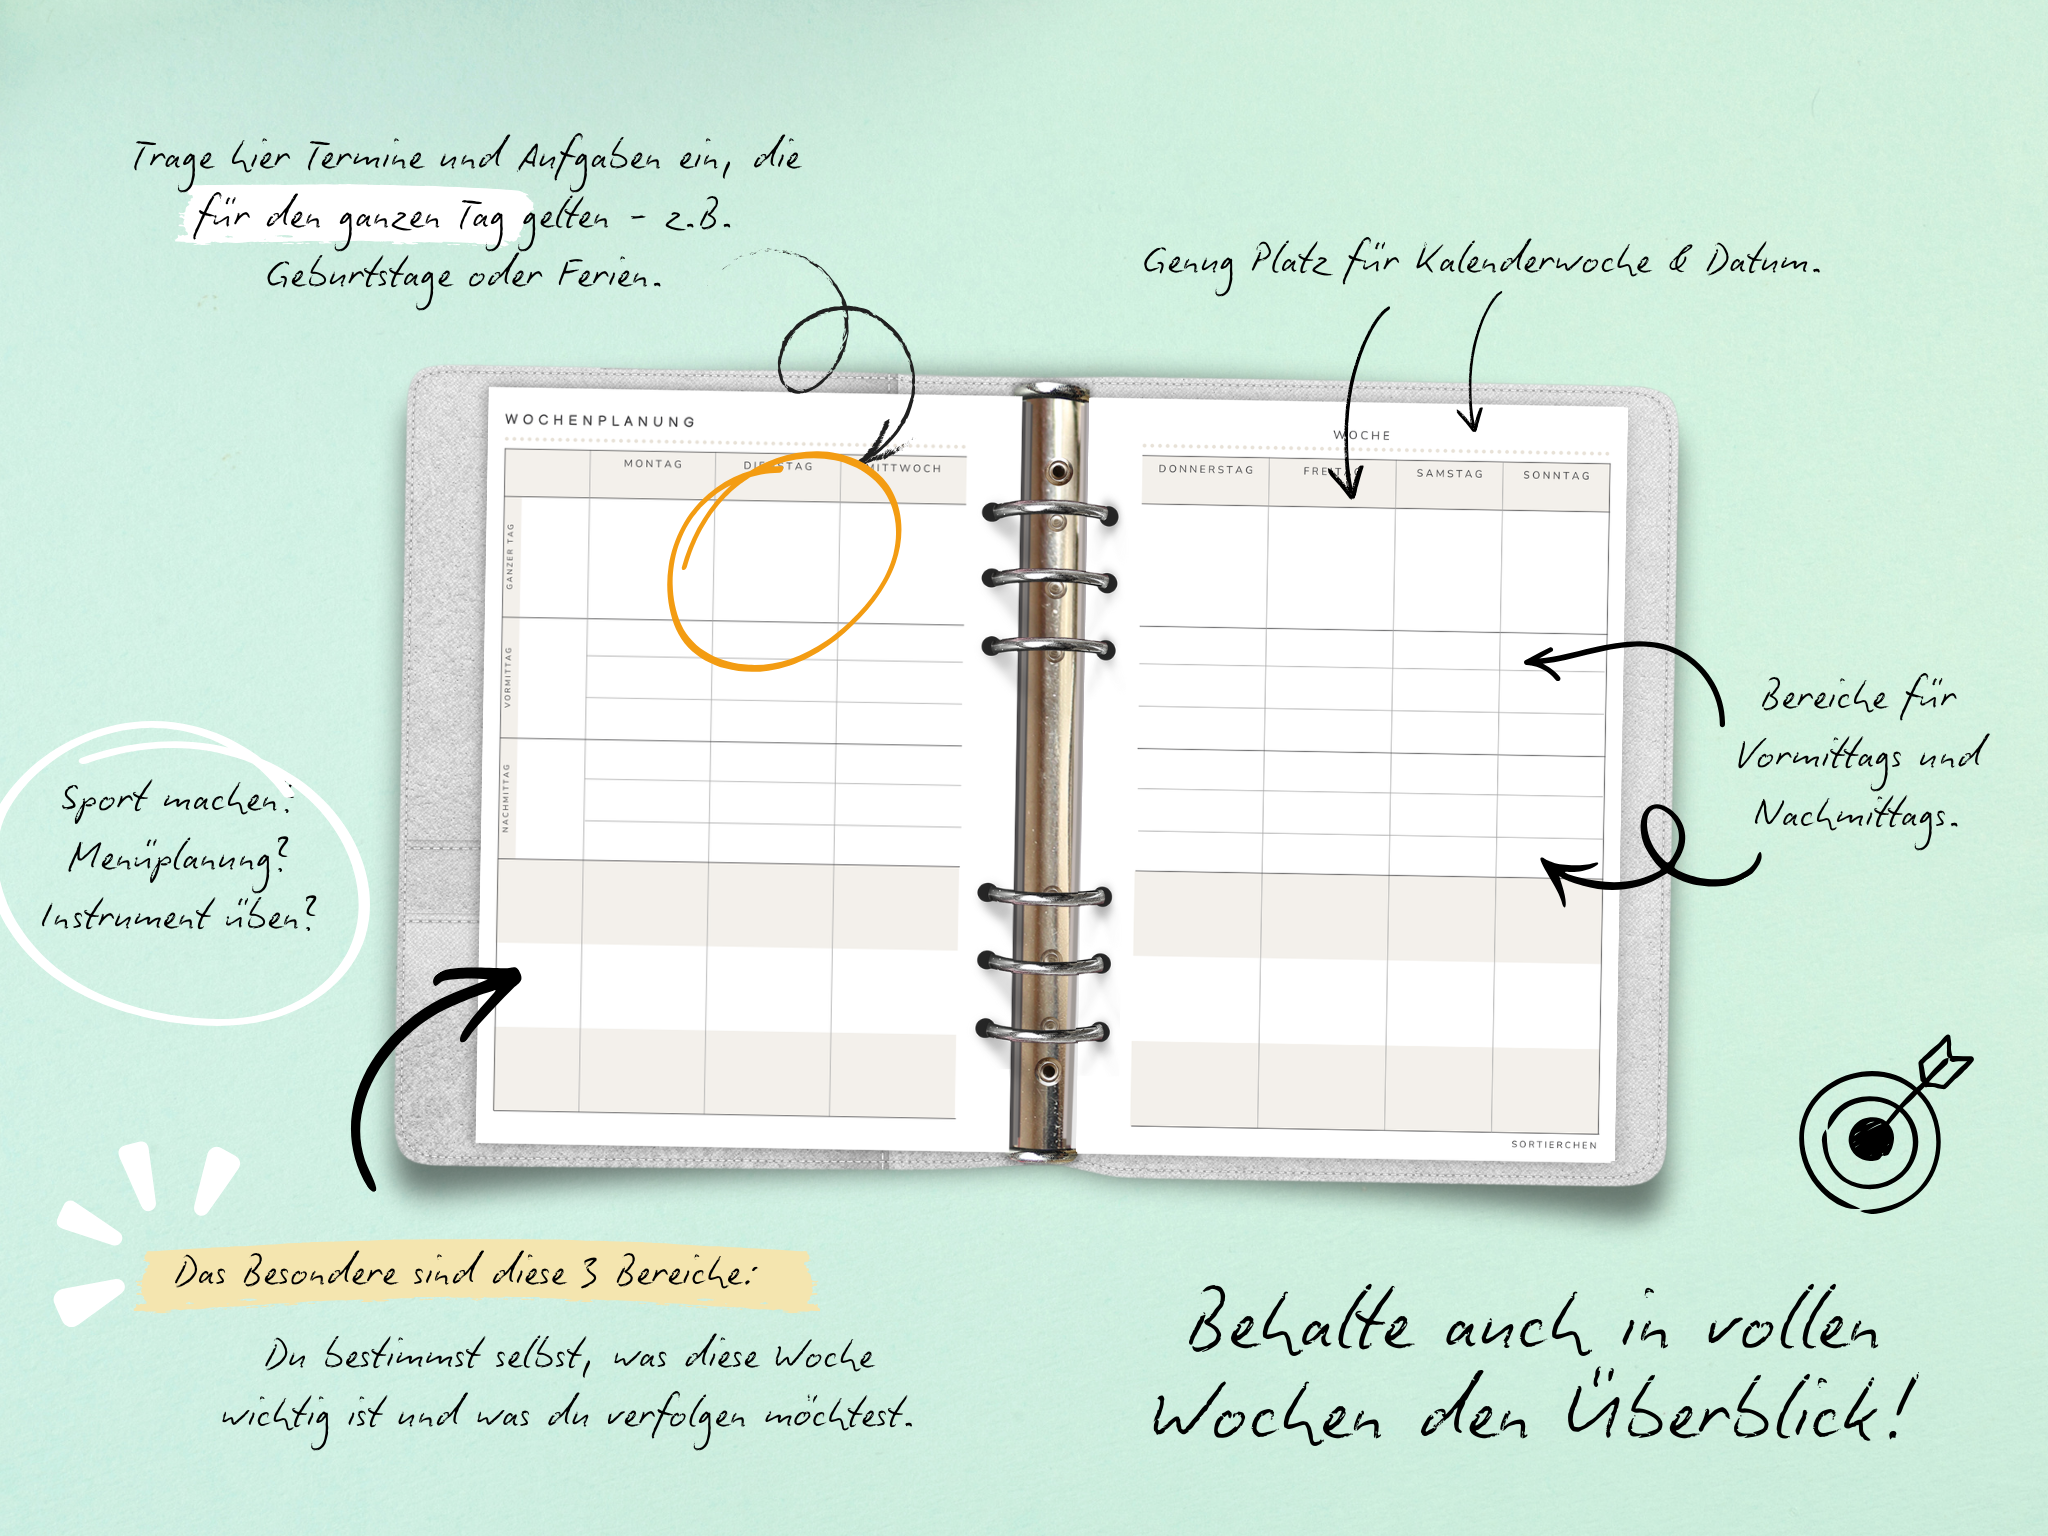 Trage hier Termine und Aufgaben ein, die
für den ganzen Tag gelten - z.B.
Geburtstage oder Ferien.
Genug Platz für Kalenderwoche & Datum.
WOCHENPLANUNG
MONTAG DIENSTAG MITTWOCH
WOCHE
DONNERSTAG FREITAG SAMSTAG SONNTAG
GANZER TAG
VORMITTAG
NACHMITTAG
Bereiche für
Vormittags und
Nachmittags.
Sport machen?
Menüplanung?
Instrument üben?
SORTIERCHEN
Das Besondere sind diese 3 Bereiche:
Du bestimmst selbst, was diese Woche
wichtig ist und was du verfolgen möchtest.
Behalte auch in vollen
Wochen den Überblick!